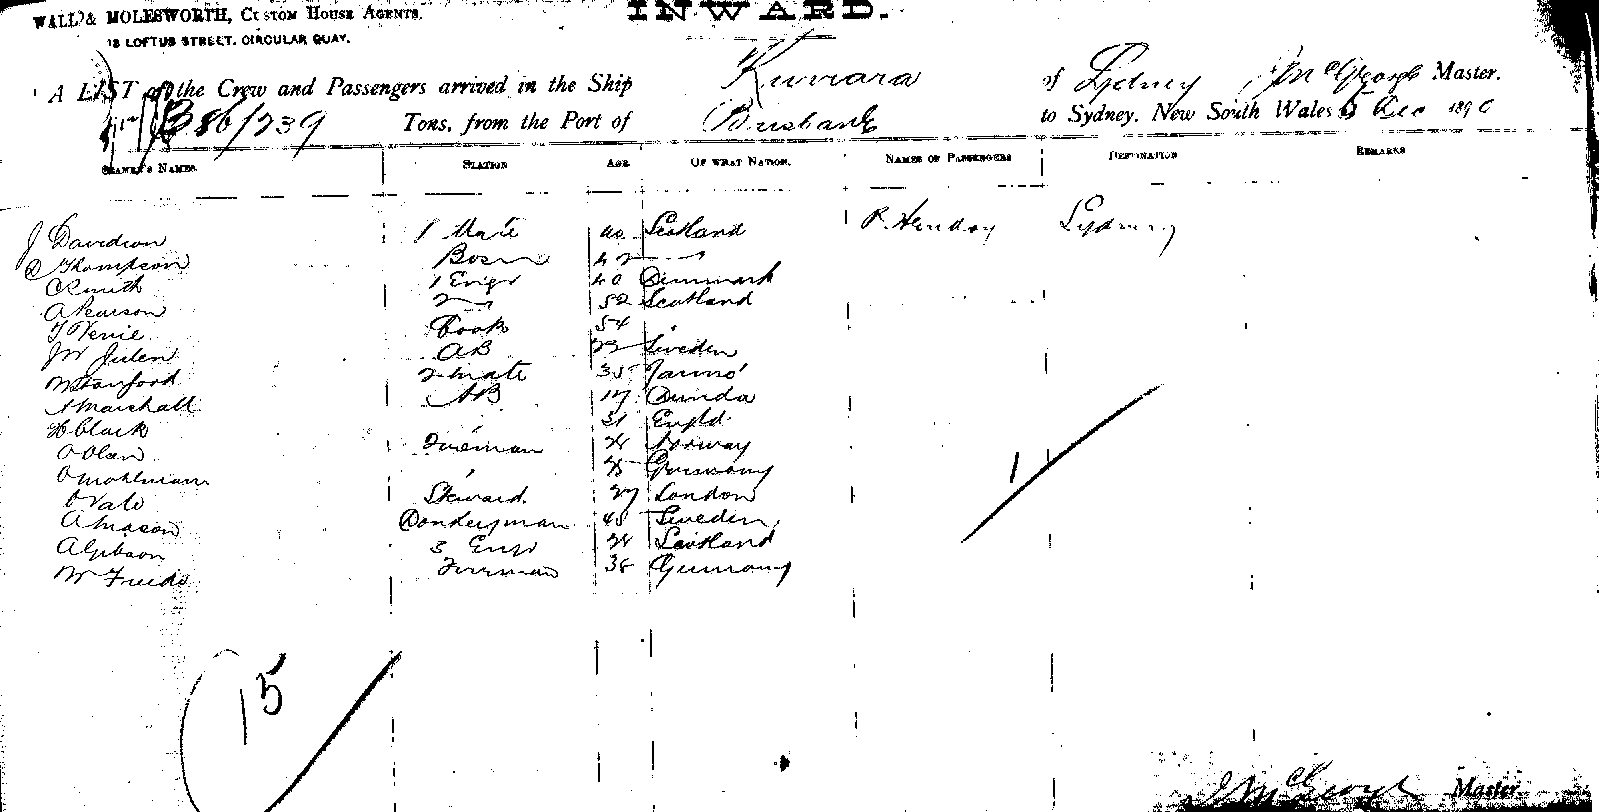 INWARD.
WALL & MOLESWORTH, CUSTOM HOUSE AGENTS.
18 LOFTUS STREET. CIRCULAR QUAY.
A LIST of the Crew and Passengers arrived in the Ship Kuwara of Sydney J McGeorge Master.
386/239 Tons, from the Port of Brisbane to Sydney. New South Wales 5 Dec 1890
SEAMEN'S NAMES. STATION AGE OF WHAT NATION. NAMES OF PASSENGERS DESTINATION REMARKS
J Davidson 1 Mate 40 Scotland P. Hendry Sydney
D Thompson Bosn 42 "
C Smith 1 Engr 40 Denmark
A Pearson 2 " 52 Scotland
Cook 54
AB Sweden
W Stanford 2 mate 35
A Marshall AB 17
H Clark 31 Engld
O Olsen Fireman Norway
Germany
Steward 27 London
A Mason Donkeyman 45 Sweden
A Gibson 3 Engr Scotland
W Fireman 38 Germany
1
15
J McGeorge Master.